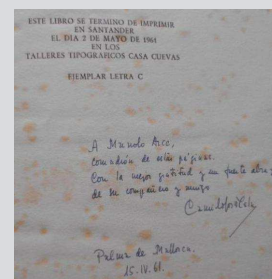 ESTE LIBRO SE TERMINO DE IMPRIMIR
EN SANTANDER
EL DIA 2 DE MAYO DE 1961
EN LOS
TALLERES TIPOGRAFICOS CASA CUEVAS
EJEMPLAR LETRA C
A Manolo Arce,
comadrón de estas páginas.
Con la mejor gratitud y un fuerte abrazo
de su compañero y amigo
Camilo José Cela
Palma de Mallorca.
15.IV.61.